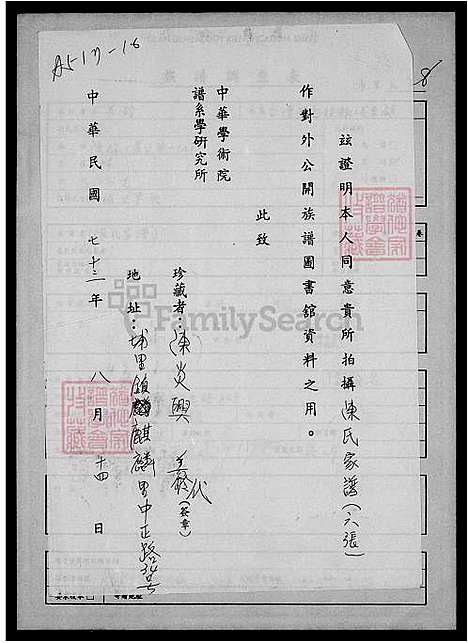 A5-17-16
8
茲證明本人同意貴所拍攝陳氏家譜(六張)
作對外公開族譜圖書館資料之用。
此致
中華學術院
譜系學研究所
珍藏者：陳炎興 代(簽章)
地址：埔里鎮麒麟里中正路
中華民國七十三年八月十四日
FamilySearch